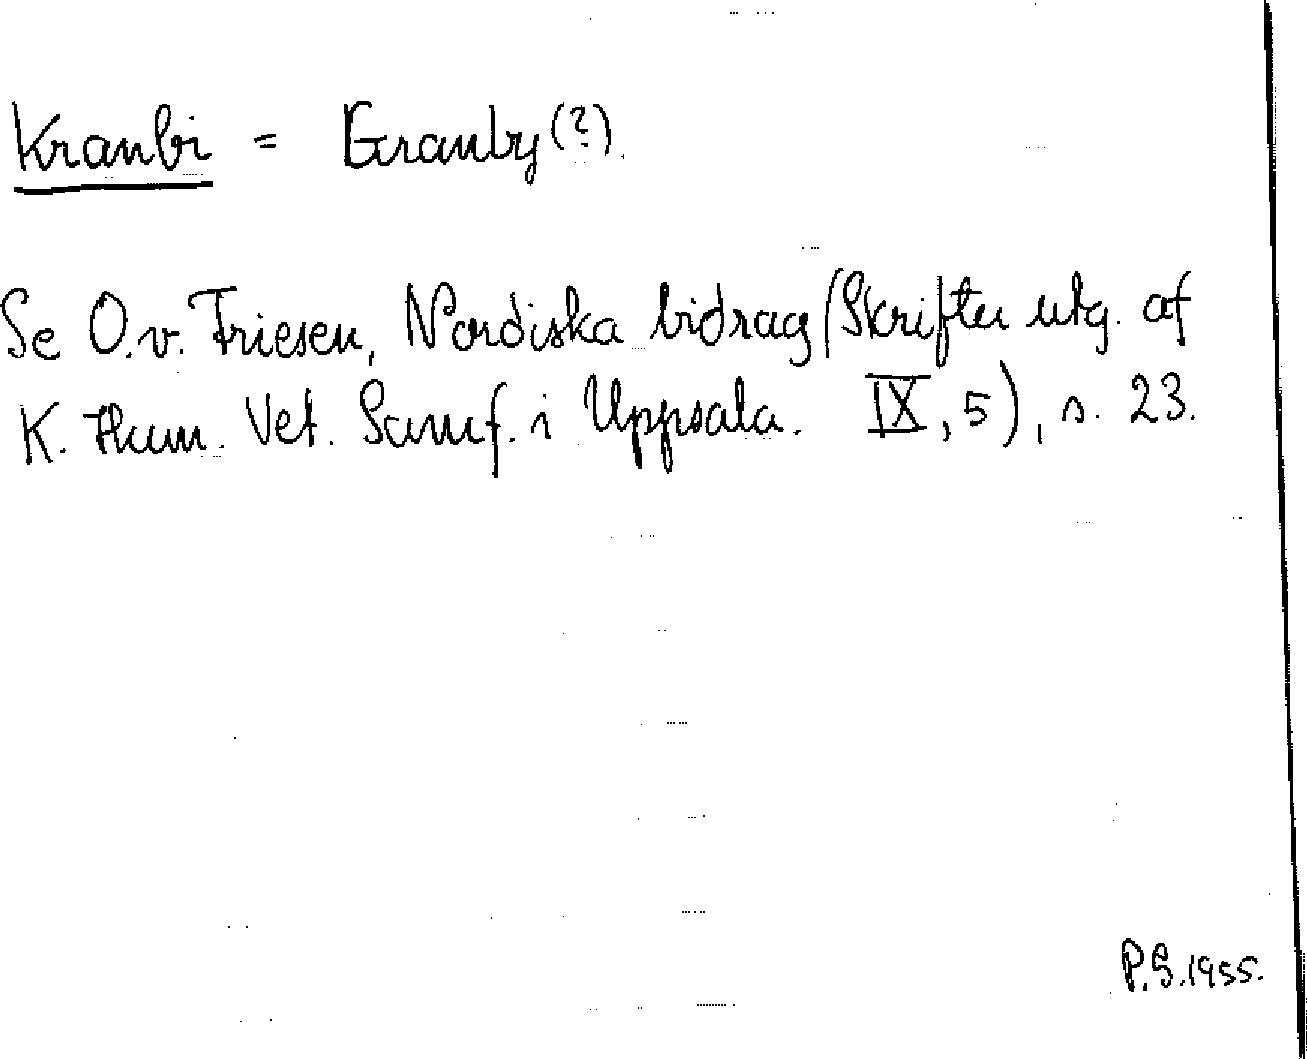 Kranbi = Granby (?).
Se O. v. Friesen, Nordiska bidrag (Skrifter utg. af
K. Hum. Vet. Samf. i Uppsala. IX, 5), s. 23.
P. S. 1955.